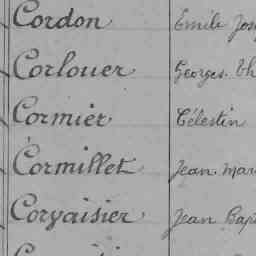 Cordon Emile
Corlouer Georges
Cormier Célestin
Cormillet Jean
Corvaisier Jean